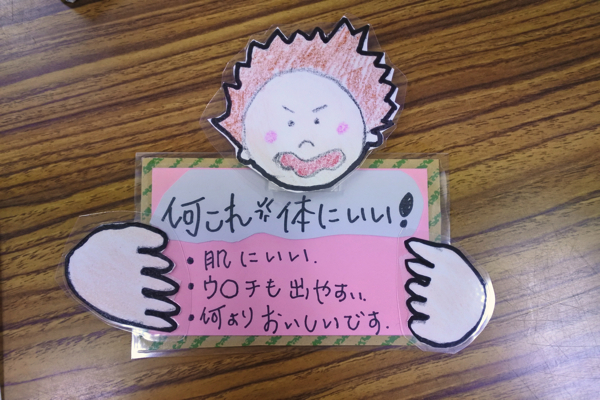 何これ 体にいい!
・肌にいい.
・ウ〇チも出やすい.
・何よりおいしいです.